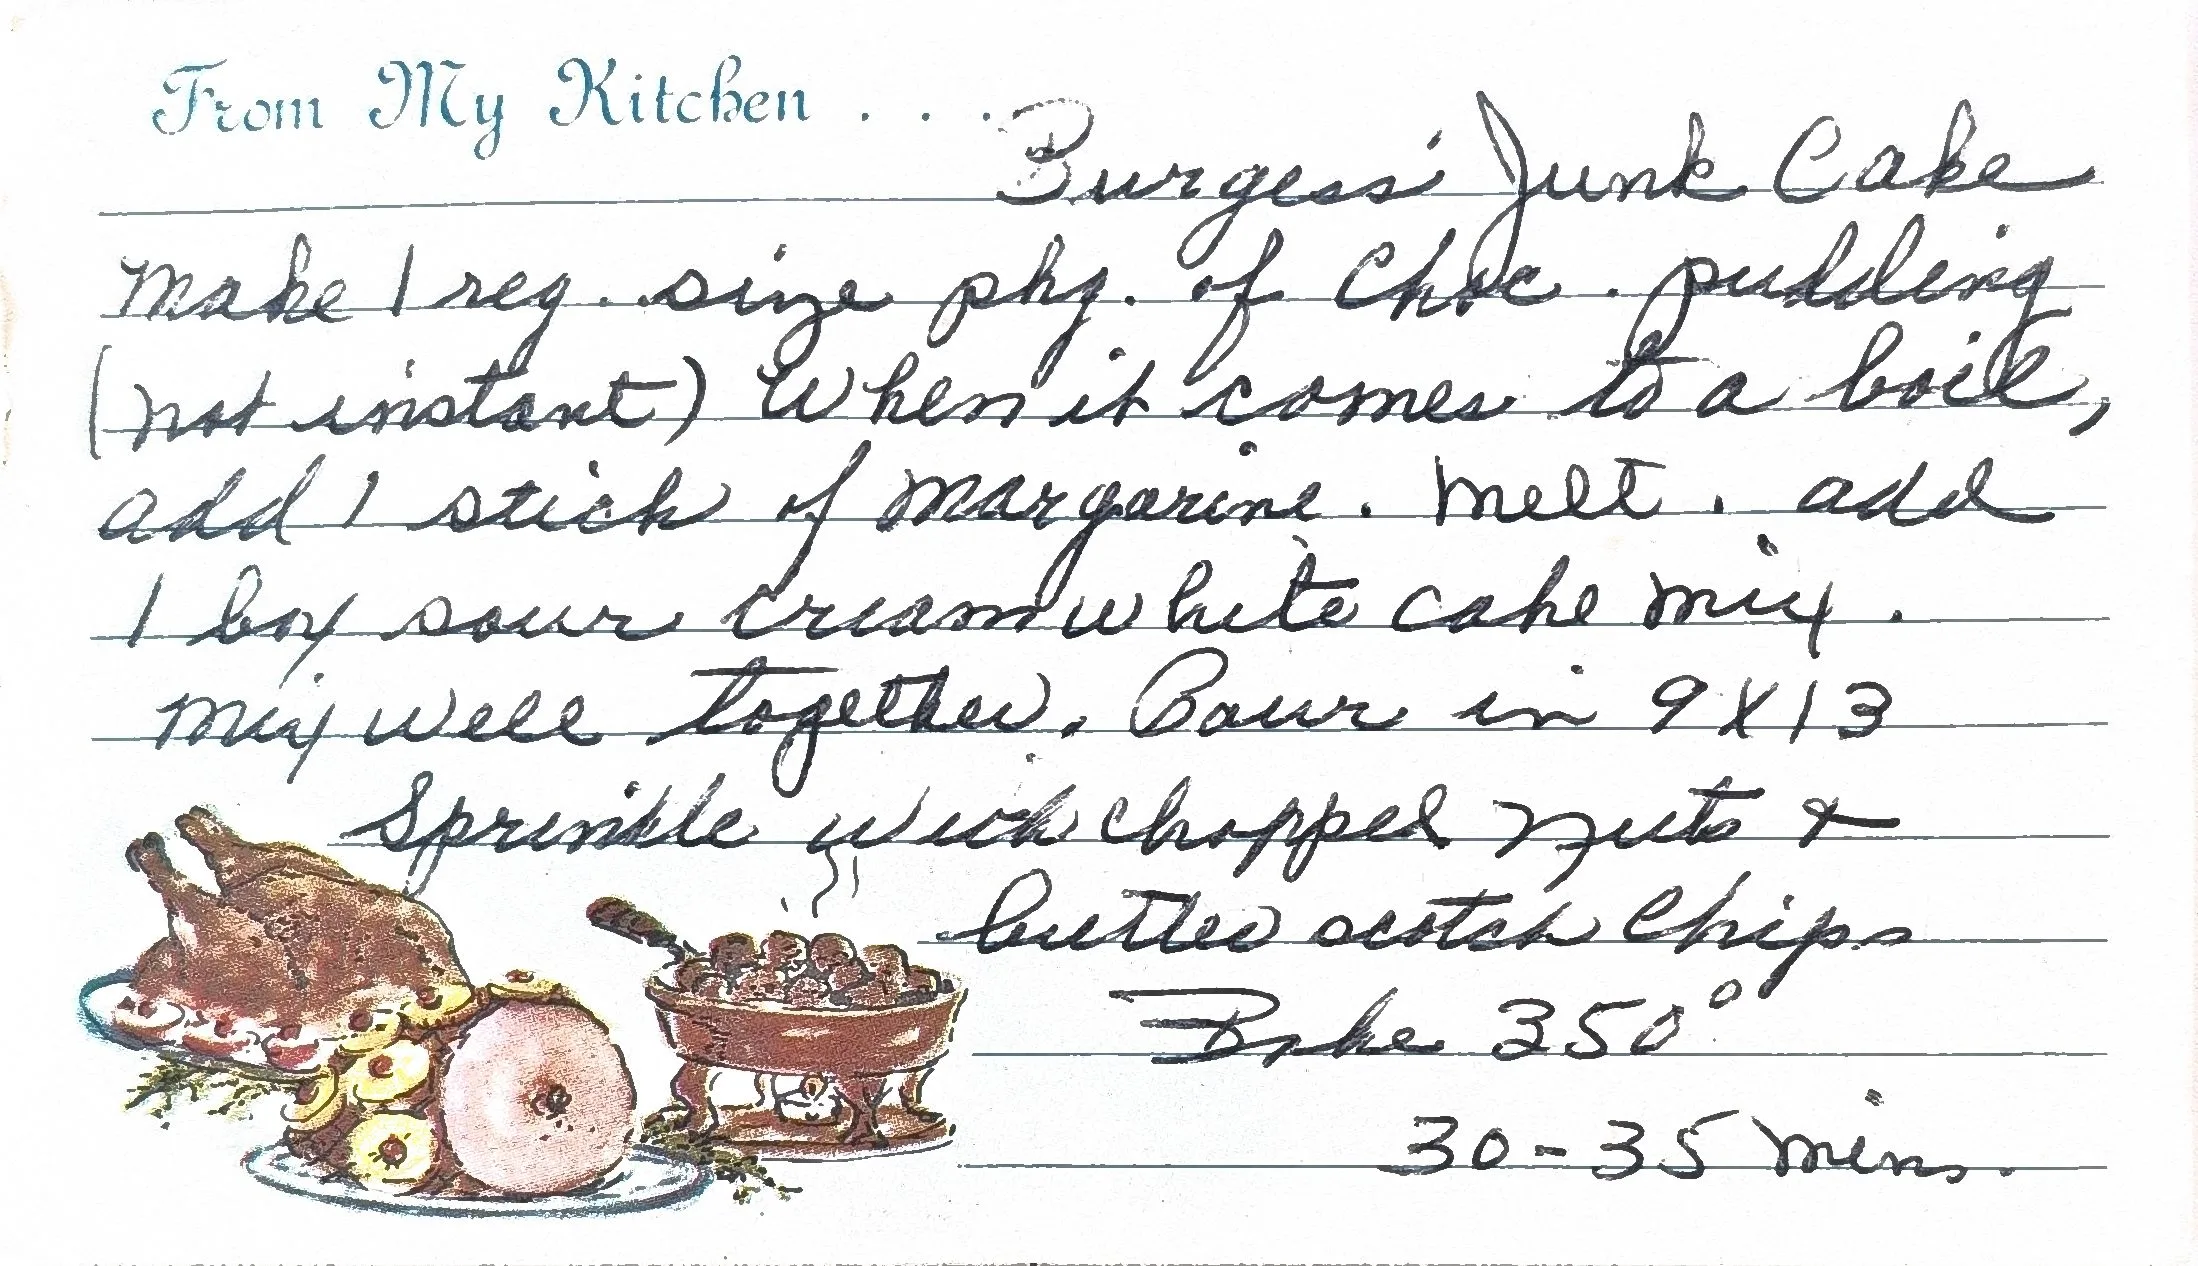 From My Kitchen . . .
Burgess' Junk Cake
Make 1 reg. size pkg. of Choc. pudding
(not instant) When it comes to a boil,
add 1 stick of Margarine. Melt. add
1 box sour cream white cake mix.
Mix well together. Pour in 9X13
Sprinkle with chopped nuts &
butter scotch Chips
Bake 350°
30-35 mins.